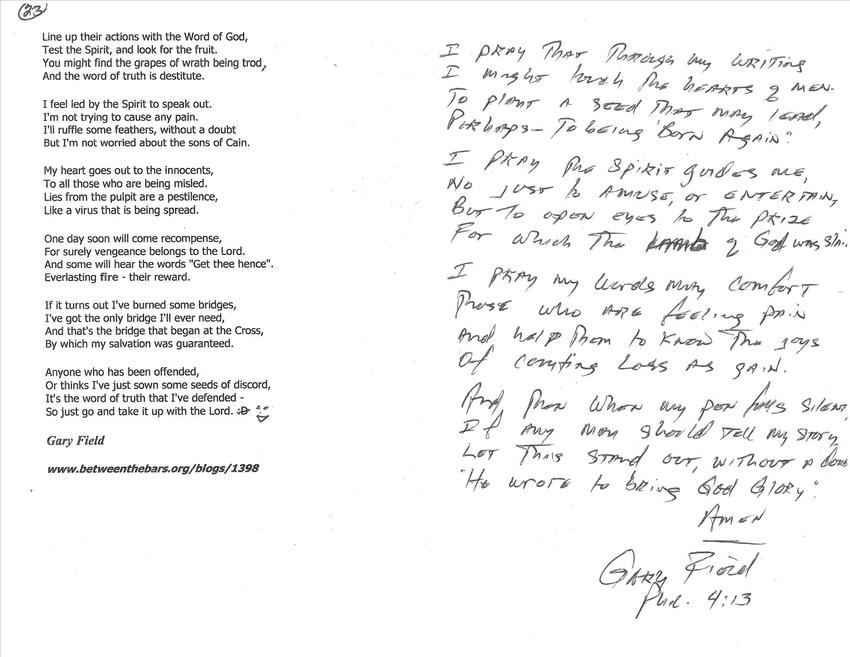 23
Line up their actions with the Word of God,
Test the Spirit, and look for the fruit.
You might find the grapes of wrath being trod,
And the word of truth is destitute.
I feel led by the Spirit to speak out.
I'm not trying to cause any pain.
I'll ruffle some feathers, without a doubt
But I'm not worried about the sons of Cain.
My heart goes out to the innocents,
To all those who are being misled.
Lies from the pulpit are a pestilence,
Like a virus that is being spread.
One day soon will come recompense,
For surely vengeance belongs to the Lord.
And some will hear the words "Get thee hence".
Everlasting fire - their reward.
If it turns out I've burned some bridges,
I've got the only bridge I'll ever need,
And that's the bridge that began at the Cross,
By which my salvation was guaranteed.
Anyone who has been offended,
Or thinks I've just sown some seeds of discord,
It's the word of truth that I've defended -
So just go and take it up with the Lord.
Gary Field
www.betweenthebars.org/blogs/1398
I pray that through my writing
I might touch the hearts of men.
To plant a seed that may lead,
Perhaps - to being "Born Again."
I pray the Spirit guides me,
No just to amuse, or entertain,
But to open eyes to the prize
For which the Lamb of God was slai
I pray my words may comfort
Those who are feeling pain
And help them to know the joys
Of counting loss as gain.
And, then when my pen falls silent,
If any man should tell my story
Let this stand out, without a dou
"He wrote to bring God Glory".
Amen
Gary Field
Phil. 4:13